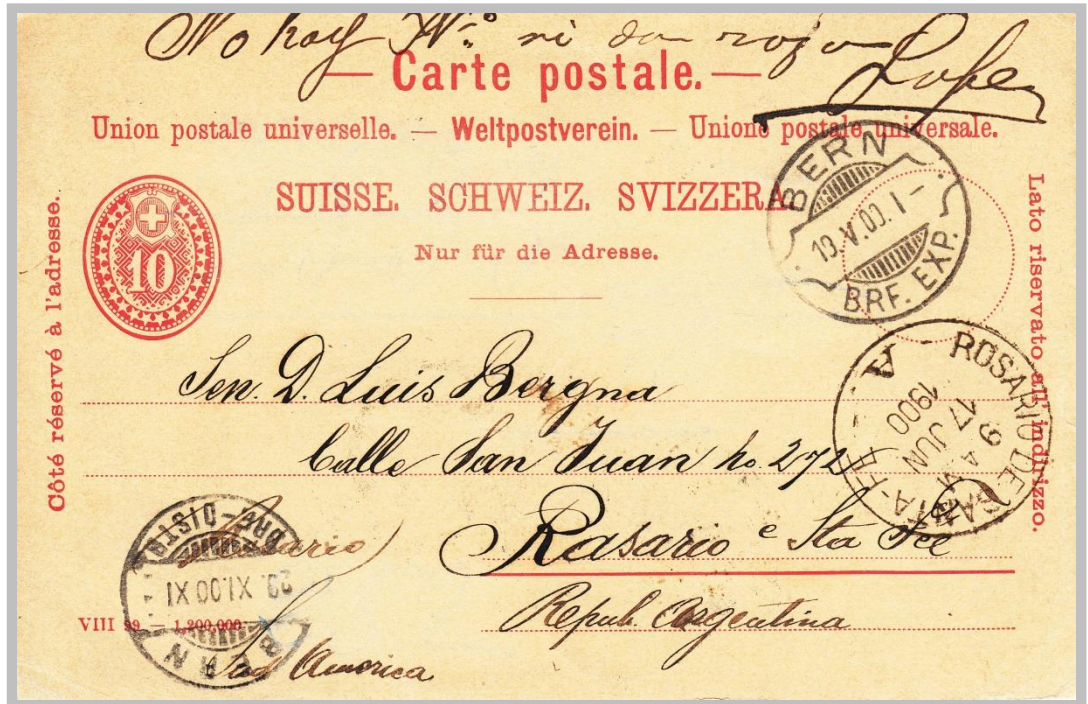 No hay Nº ni dan razon
Lopez
— Carte postale. —
Union postale universelle. — Weltpostverein. — Unione postale universale.
SUISSE. SCHWEIZ. SVIZZERA.
Nur für die Adresse.
Côté réservé à l'adresse.
Lato riservato all' indirizzo.
10
BERN
10.V.00.I-
BRF. EXP.
ROSARIO DE SANTA-FE
A
9 A M
17 JUN
1900
Sen. D. Luis Bergna
Calle San Juan no. 272
Rasario e Sta Fee
Repub. Argentina
Rosario
Sud America
BRF-DISTR.
29. XI.00 XI
BERN
VIII 99 — 1,200,000.